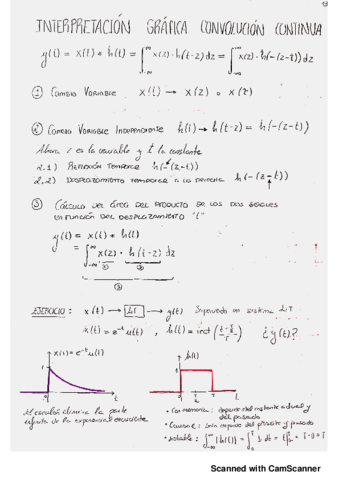 INTERPRETACIÓN GRÁFICA CONVOLUCIÓN CONTINUA
y(t) = x(t) * h(t) = ∫_{-∞}^{∞} x(z)·h(t-z)dz = ∫_{-∞}^{∞} x(z)·h(-(z-t))dz
① CAMBIO VARIABLE x(t) → x(z) o x(τ)
② CAMBIO VARIABLE INDEPENDIENTE h(t) → h(t-z) = h(-(z-t))
Ahora z es la variable y t la constante
2.1) REFLEXIÓN TEMPORAL h(-(z-t))
2.2) DESPLAZAMIENTO TEMPORAL A LA DERECHA h(-(z-t))
③ CÁLCULO DEL ÁREA DEL PRODUCTO DE LOS DOS BLOQUES
EN FUNCIÓN DEL DESPLAZAMIENTO "t"
y(t) = x(t) * h(t)
= ∫_{-∞}^{∞} x(z) · h(t-z) dz
① ②
③
EJERCICIO: x(t) → LTI → y(t) Suponiendo un sistema LIT
x(t) = e^{-t} u(t) , h(t) = rect ¿y(t)?
x(t) = e^{-t} u(t)
h(t)
1
1
t
T
t
El escalón elimina la parte
infinita de la exponencial decreciente
• Con memoria: depende del instante actual y
del pasado
• Causal: solo depende del presente y pasado
• Estable: ∫_{-∞}^{∞} |h(t)| = ∫_0^T 1·dt = t|_0^T = T-0 = T
Scanned with CamScanner